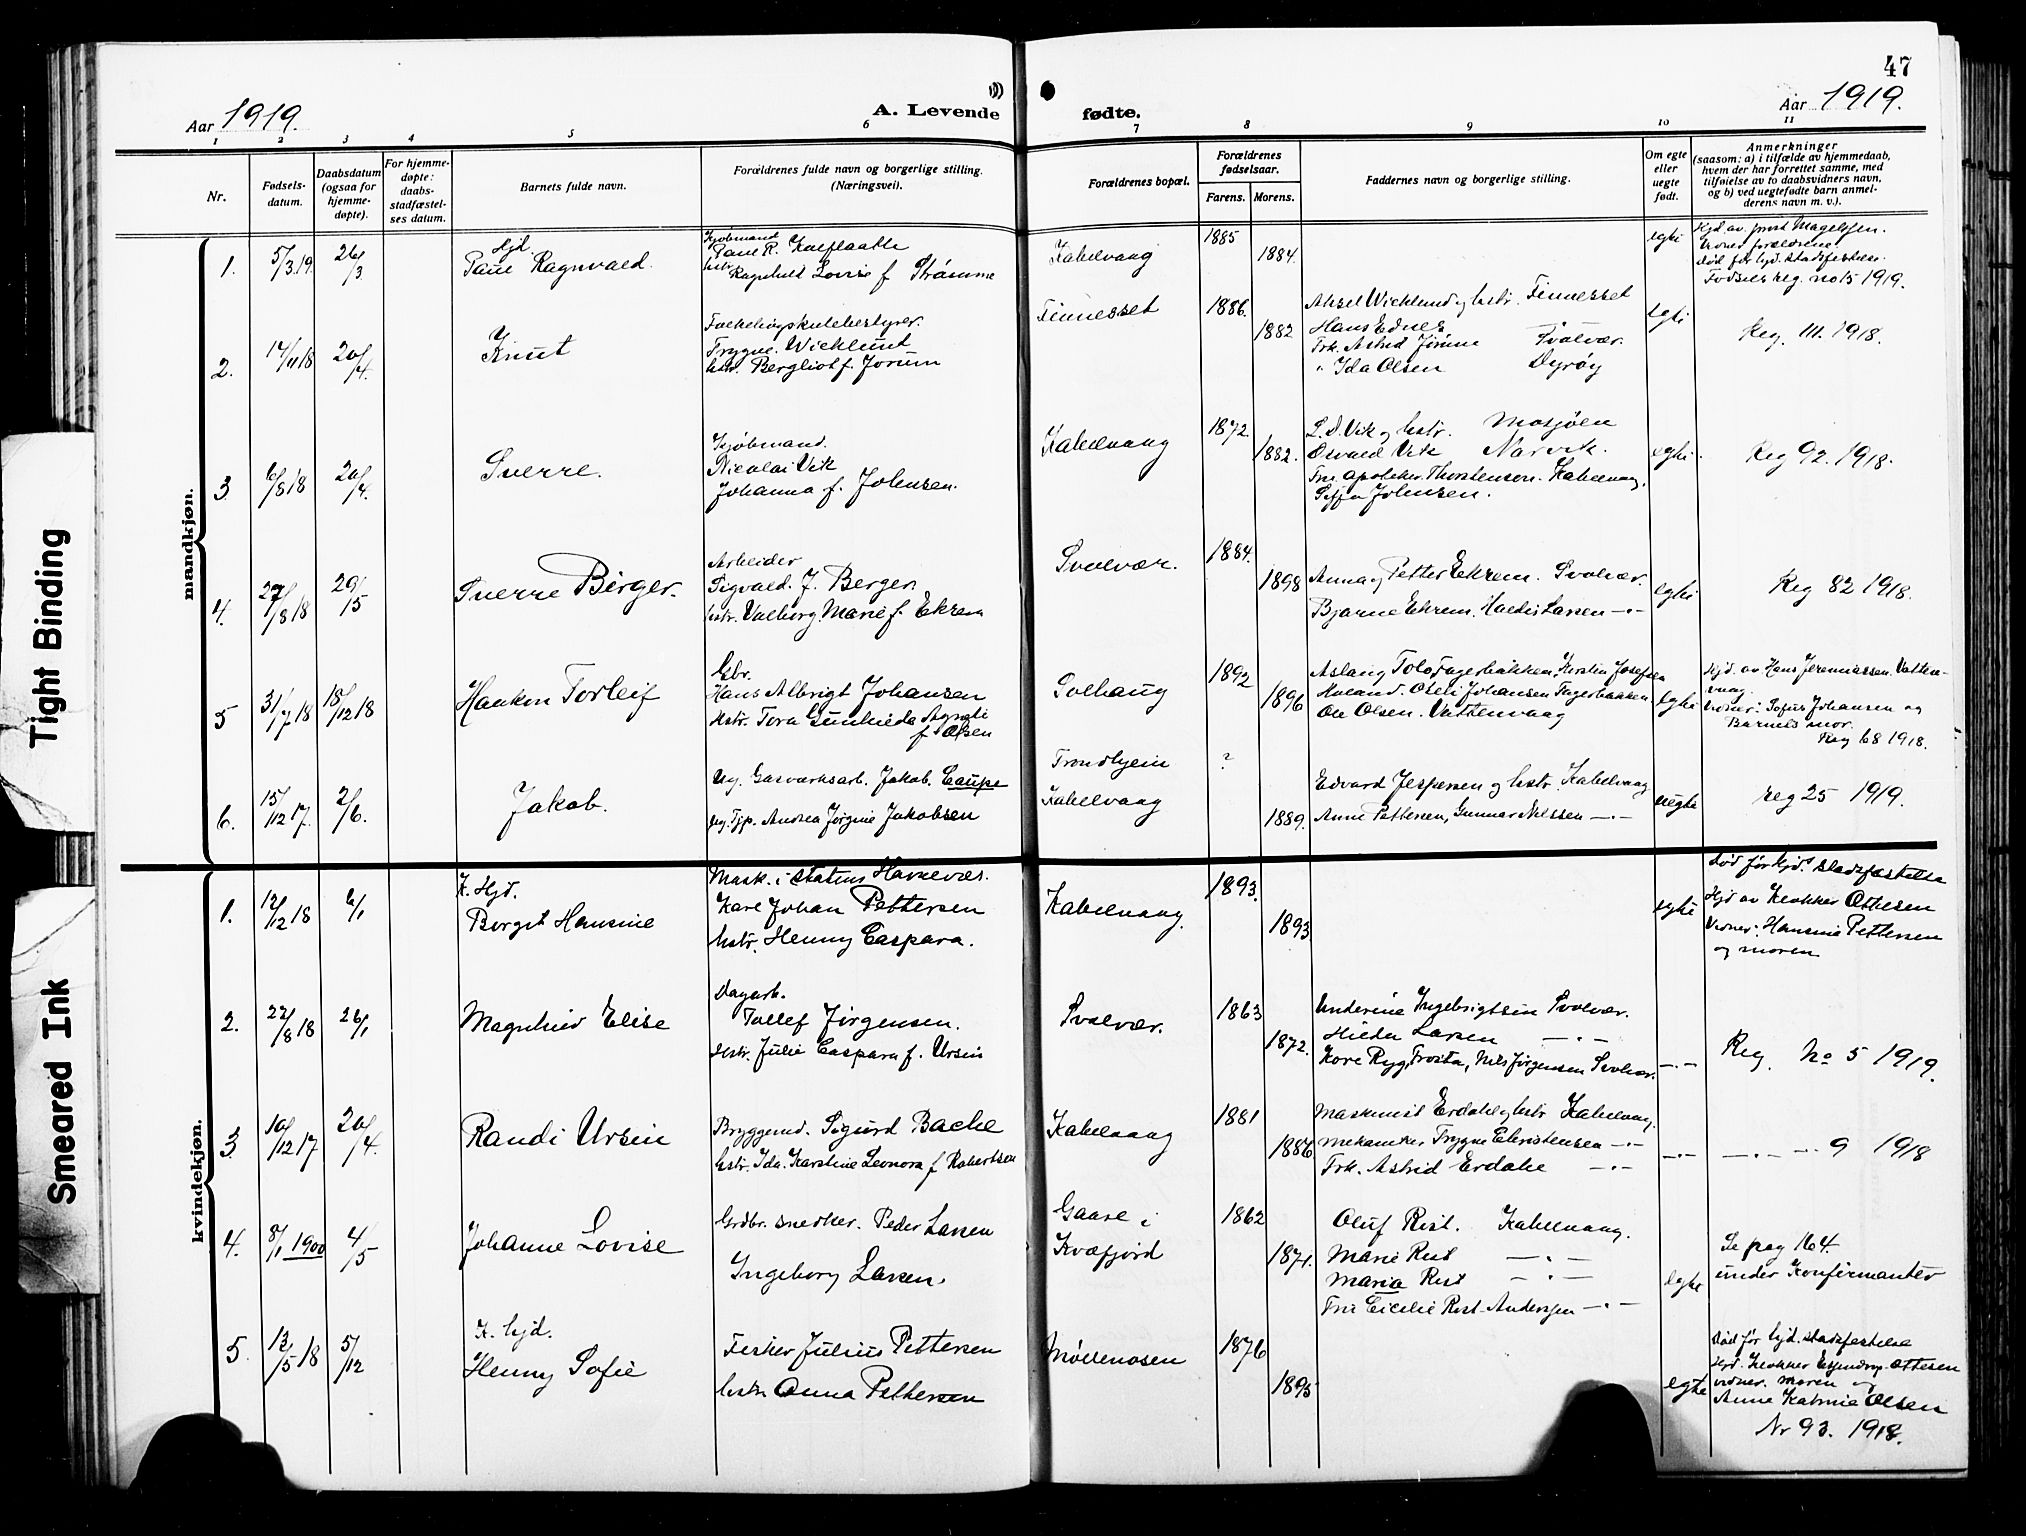 47
Aar 1919.
A. Levende fødte.
Aar 1919.
1 2 3 4 5 6 7 8 9 10 11
Nr.
Fødsels-
datum.
Daabsdatum
(ogsaa for
hjemme-
døpte).
For hjemme-
døpte:
daabs-
stadfæstel-
ses datum.
Barnets fulde navn.
Forældrenes fulde navn og borgerlige stilling.
(Næringsvei).
Forældrenes bopæl.
Forældrenes
fødselsaar.
Farens. Morens.
Faddernes navn og borgerlige stilling.
Om egte
eller
uegte
født.
Anmerkninger
(saasom: a) i tilfælde av hjemmedaab,
hvem der har forrettet samme, med
tilføielse av to daabsvidners navn,
og b) ved uegtefødte barn anmel-
derens navn m. v.).
mandkjøn.
1. 5/3.19. 26/3
Hjd.
Paul Ragnvald.
Kjøbmand
Paul R. Kalflaatte
hstr. Ragnhild Lovise f. Strømme
Kabelvaag
1885
1884.
egte
Hjd. av prost Magelssen.
Vidner forældrene
død før hjd. stadfestelse.
Fødsels reg. no 15 1919.
2. 14/11 18 20/4.
Knut
Folkehøgskulebestyrer.
Trygve Wicklunt
hstr. Bergliot f. Jorum
Finnesset
1886.
1882
Aksel Wicklund og hstr. Finnesset
Hans Ednes
Frk. Astrid Jinne Svolvær.
" Ida Olsen Dyrøy
egte
Reg. 111. 1918.
3. 6/8 18 20/4.
Sverre.
Kjøbmand.
Nicolai Vik
Johanna f. Johnsen.
Kabelvaag
1872.
1882.
L. D. Vik og hstr. Mosjøen
Osvald Vik Narvik.
Fru apoteker Thorstensen. Kabelvaag.
Johnsen.
egte.
Reg 92. 1918.
4. 27/8 18 29/15
Sverre Birger.
Arbeider
Sigvald. J. Berger.
hstr. Valborg Marie f. Ekrem
Svolvær.
1884.
1898
Anna og Petter Ekrem. Svolvær.
Bjarne Ekrem. Haldis Larsen -"-
egte
Reg 82 1918.
5 31/7 18 18/12 18
Haakon Torleif
Gbr.
Hans Albrigt Johansen
Hstr. Tora Gunhilda Agnati
f. Olsen
Solhaug
1892
1896
Aslaug Tolo Fagerbakken, Kirstin Josefsen
Høland. Oseli Johansen Fagerbakken
Ole Olsen. Vattervaag
egte
Hjd. av Hans Jeremiassen Vatter-
vaag.
Vidner: Sofus Johansen og
Barnets mor.
Reg 68 1918.
6. 15/12 17. 2/6.
Jakob.
Ug. Gasverksarb. Jakob. Caupe
ug. Tjp. Andrea Jørgine Jakobsen
Trondhjem
Kabelvaag
?
1889.
Edvard Jespersen og hstr. Kabelvaag
Anna Pettersen, Gunnar Nilssen -"-
uegte
reg 25 1919.
kvindekjøn.
1. 12/12 18 6/1
K. Hjd.
Berget Hansine
Mask. i statens Havnevæs.
Karl Johan Pettersen
hstr. Henny Caspara.
Kabelvaag.
1893.
1893
egte
død før hjd. stadfæstelse
Hjd av Klokker Ottesen
Vidner: Hansine Pettersen
og moren
2. 22/8 18 26/1
Magnhild Elise
Dagarb.
Tollef Jørgensen.
Hstr. Julie Caspara f. Ursin
Svolvær.
1863
1872.
Underine Ingebrigtsen Svolvær.
Hilda Larsen -"-
Kore Ryg, Frosta, Nils Jørgensen Svolvær.
-"-
Reg. No 5 1919.
3. 10/12 17 20/4.
Randi Ursin
Bryggemd. Sigurd Bache
hstr. Ida Karstine Leonora f. Robertsen
Kabelvaag
1881
1886
Maskinist Erdahl og hstr Kabelvaag.
Mekaniker Trygve Christensen -"-
Frk. Astrid Erdahl -"-
-"-
-"- -"- 9 1918
4. 8/1 1900 4/5
Johanne Lovise
Grdbr. snedker. Peder Larsen
Ingeborg Larsen.
Gaare i
Kvæfjord
1862
1871.
Oluf Rist. Kabelvaag.
Marie Rist -"-
Maria Rist -"-
Fru Cecilie Rist-Andersen -"-
egte
Se pag 164.
under Konfirmanter
5. 12/5 18 5/12
K. hjd.
Henny Sofie
Fisker Julius Pettersen
hstr Anna Pettersen
Møllenosen
1876
1895
egte
død før hjd. stadfestelse
Hjd. Klokker Ottesen
vidner. moren og
Anne Katrine Olsen
Nr 93. 1918.
Tight Binding
Smeared Ink